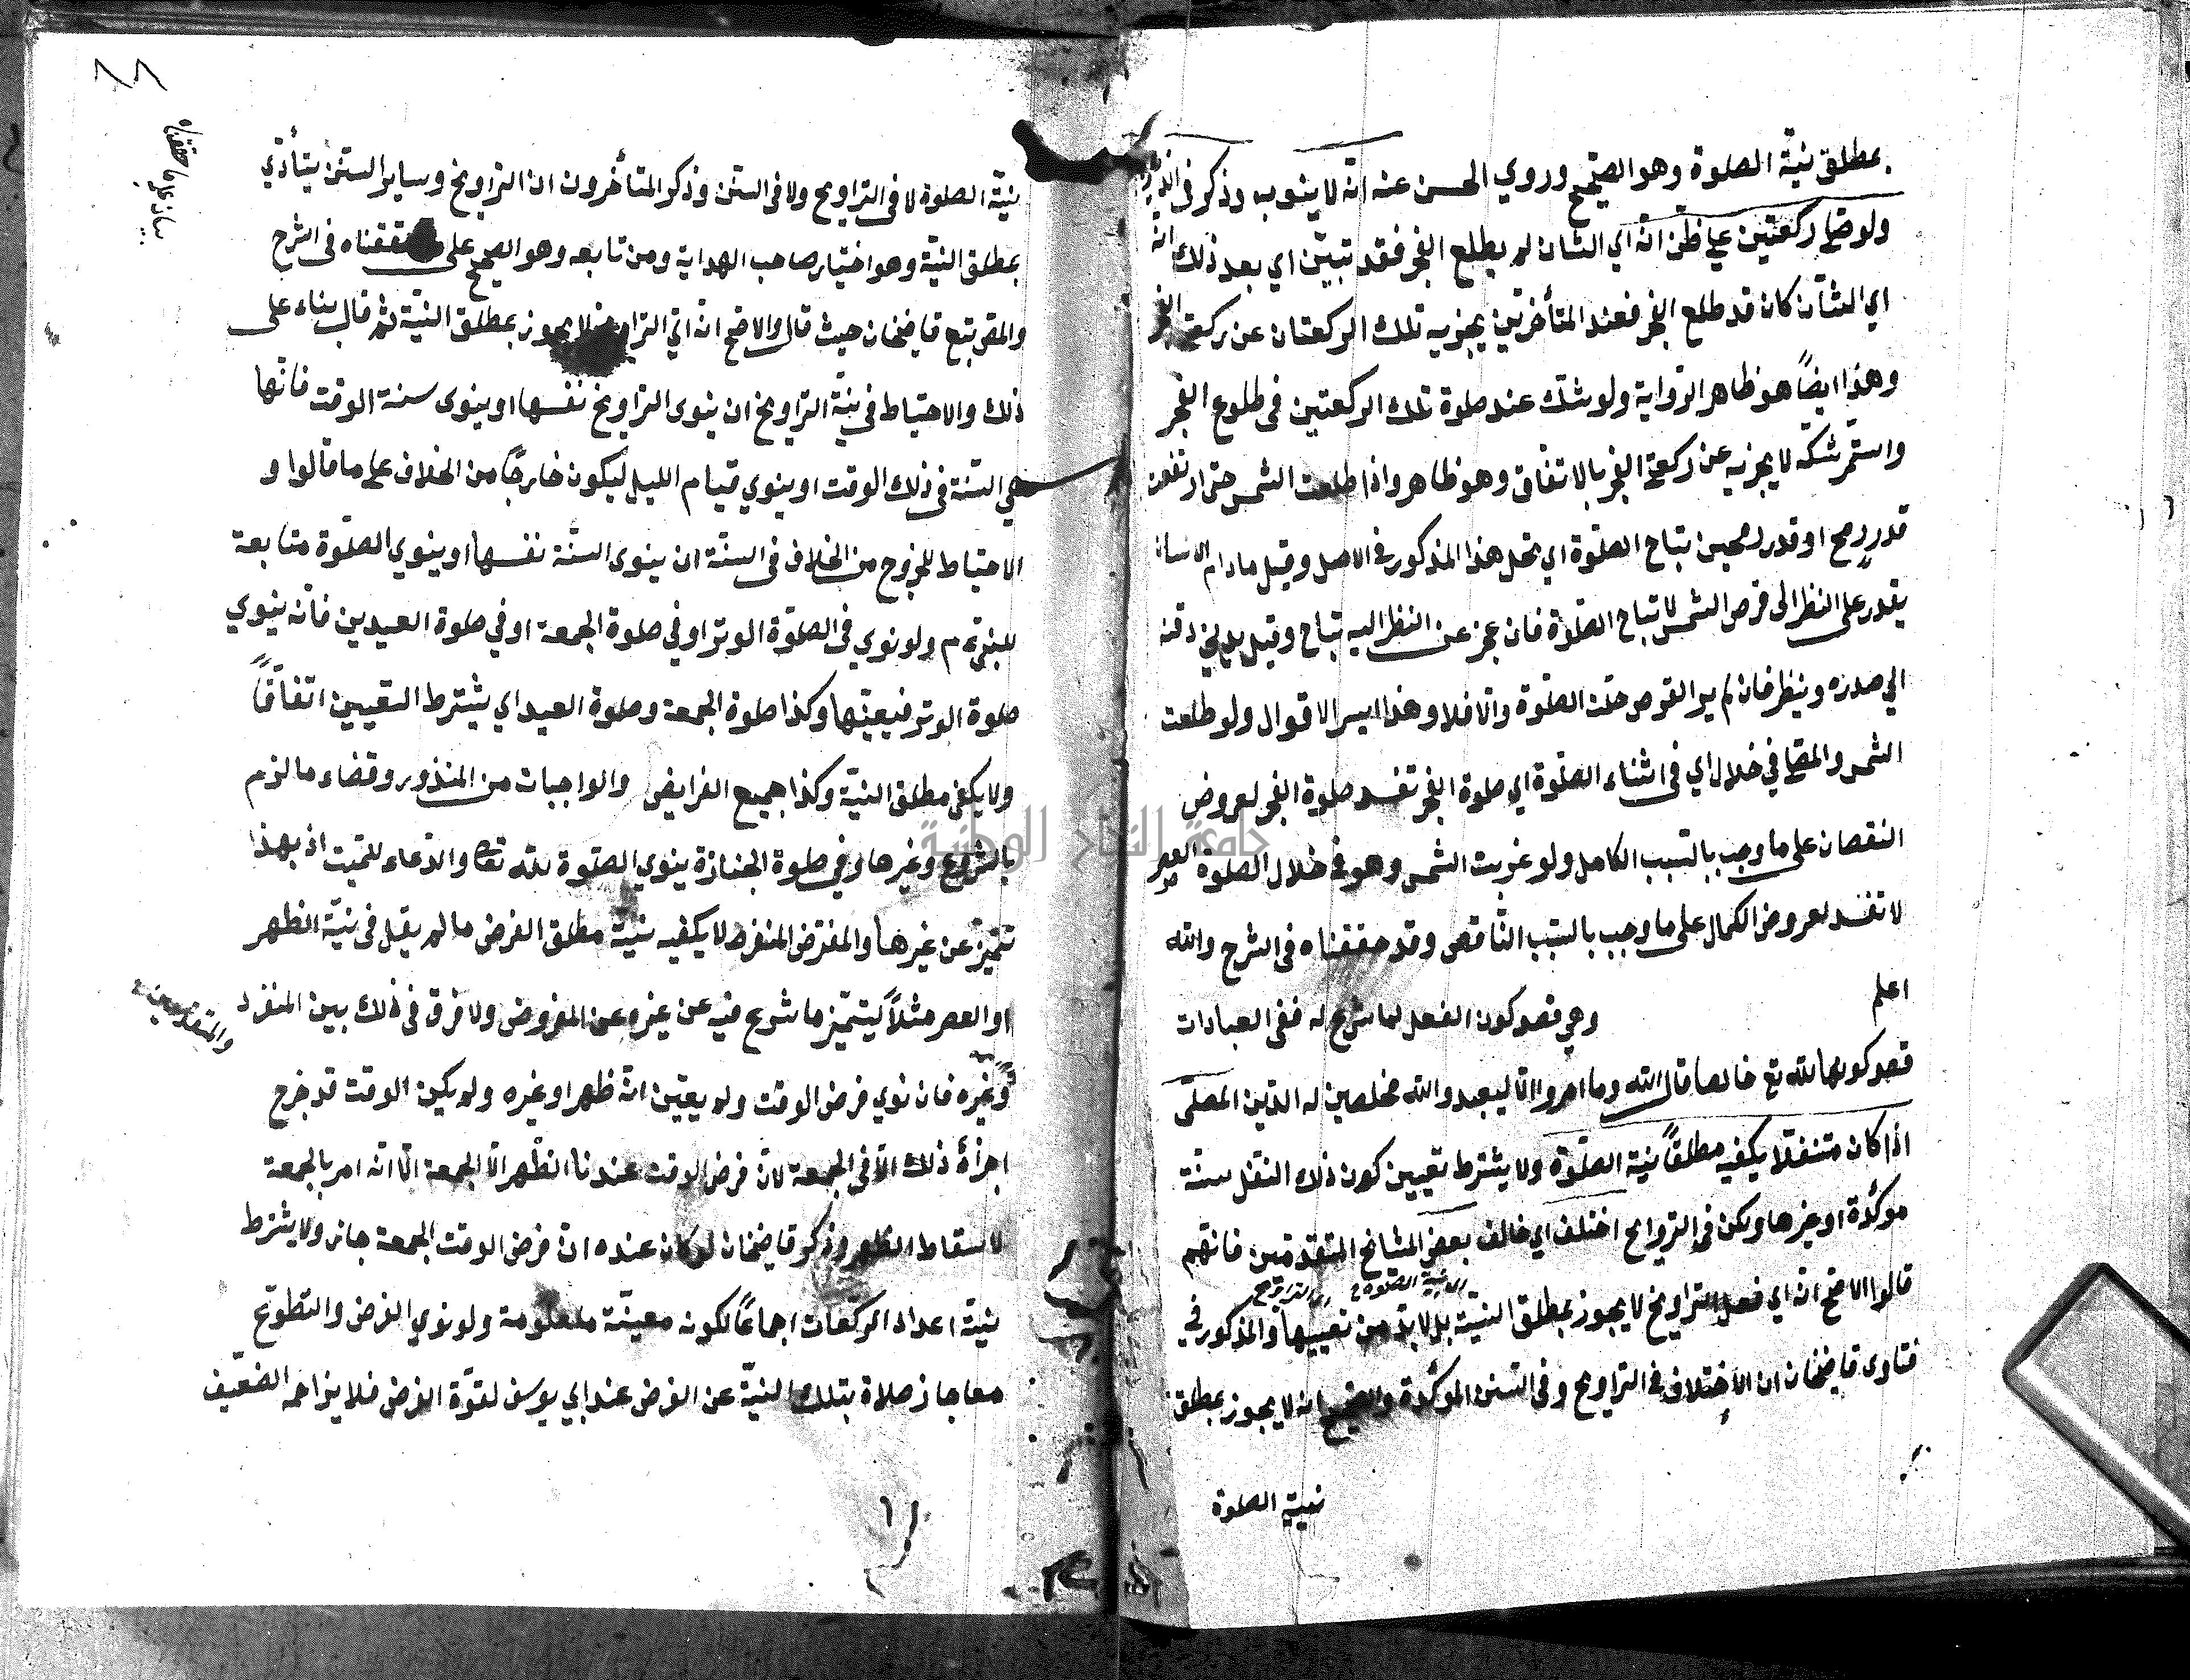 بمطلق نية الصلوة وهو الصحيح وروي الحسن عنه انه لا ينوب وذكر في
ولو صلى ركعتين على ظن انه اي الشان لم يطلع الفجر فقد تبين اي بعد ذلك انه
اي الشأن كان قد طلع الفجر فعند المتأخرين يجزيه تلك الركعتان عن ركعتي الفجر
وهذا ايضاً هو ظاهر الرواية ولو شك عند صلوة تلك الركعتين في طلوع الفجر
واستمر شكه لا يجزيه عن ركعتي الفجر بالاتفاق وهو ظاهر واذا طلعت الشمس حتى ارتفعت
قدر رمح او قدر رمحين تباح الصلوة اي تحل هذا المذكور في الاصل وقيل مادام الانسان
يقدر على النظر الى قرص الشمس لا تباح الصلوة فان عجز عن النظر اليه تباح وقيل يدلي ذقنه
الي صدره وينظر فان لم ير القرص حلت الصلوة والا فلا وهذا ايسر الاقوال ولو طلعت
الشمس والمصلي في خلال اي في اثناء الصلوة اي صلوة الفجر تفسد صلوة الفجر لعروض
النقصان على ما وجب بالسبب الكامل ولو غربت الشمس وهو في خلال الصلوة العصر
لا تفسد لعروض الكمال على ما وجب بالسبب الناقص وقد حققناه في الشرح والله
اعلم وهي قصد كون الفعل لما شرع له ففي العبادات
قصد كونها لله تع خالصا قال الله وما امروا الا ليعبدوا الله مخلصين له الدين المصلى
اذا كان متنفلا يكفيه مطلقاً نية الصلوة ولا يشترط تعيين كون ذلك النفل سنة
موكدة او غيرها ولكن في التروايح اختلف اي خالف بعض المشايخ المتقدمين فانهم
قالوا الاصح انه اي فعل التراويح لا يجوز بمطلق النية بل لابد من تعيينها والمذكور في
فتاوى قاضيخان ان الاختلاف في التراويح وفي السنن المؤكدة والصحيح انه لا يجوز بمطلق
نية الصلوة
نية الصلوة لا في التراويح ولا في السنن وذكر المتأخرون ان التراويح وساير السنن يتأدي
بمطلق النية وهو اختيار صاحب الهداية ومن تابعه وهو الصحيح على حققناه في الشرح
والمص تبع قاضيخان حيث قال والاصح انه اي التراويح لا يجوز بمطلق النية ثم قال بناء على
ذلك والاحتياط في نية التراويح ان ينوى التراويح نفسها او ينوى سنة الوقت فانها
هي السنة في ذلك الوقت او ينوي قيام الليل ليكون خارجاً من الخلاف على ما قالوا و
الاحتياط للخروج من الخلاف في السنة ان ينوى السنة نفسها او ينوي الصلوة متابعة
للنبي عم ولو نوي في الصلوة الوتر او في صلوة الجمعة او في صلوة العيدين فانه ينوي
صلوة الوتر فيعينها وكذا صلوة الجمعة وصلوة العيد اي يشترط التعيين اتفاقاً
ولا يكفي مطلق النية وكذا جميع الفرايض والواجبات من المنذور وقضاء ما لزم
بالشروع وغيرها وفي صلوة الجنازة ينوي الصلوة لله تعالى والدعاء للميت اذ بهذا
تتميز عن غيرها والمفترض المنفرد لا يكفيه نية مطلق الفرض ما لم يقل في نية الظهر
او العصر مثلاً ليتميز ما شرع فيه عن غيره عن المفروض ولا فرق في ذلك بين المنفرد
وغيره فان نوي فرض الوقت ولم يعين انه ظهر او غيره ولم يكن الوقت قد خرج
اجزأه ذلك الا في الجمعة لان فرض الوقت عندنا الظهر الا الجمعة الا انه امر بالجمعة
لاسقاط الظهر وذكر قاضيخان لو كان عنده ان فرض الوقت الجمعة جاز ولا يشترط
نية اعداد الركعات اجماعاً لكونه معينة معلومة ولو نوي الفرض والتطوع
معا جاز صلاة بتلك النية عن الفرض عند ابي يوسف لقوة الفرض فلا يزاحمه الضعيف
جامعة النجاح الوطنية